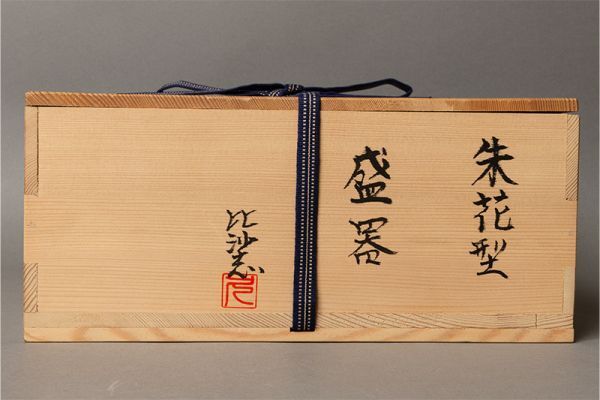 朱花型
盛器
比沙志